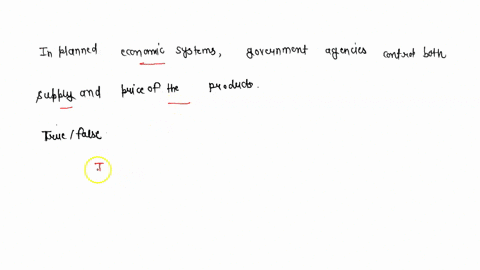 In planned economic systems, government agencies control both
supply and price of the products.
True/false
T